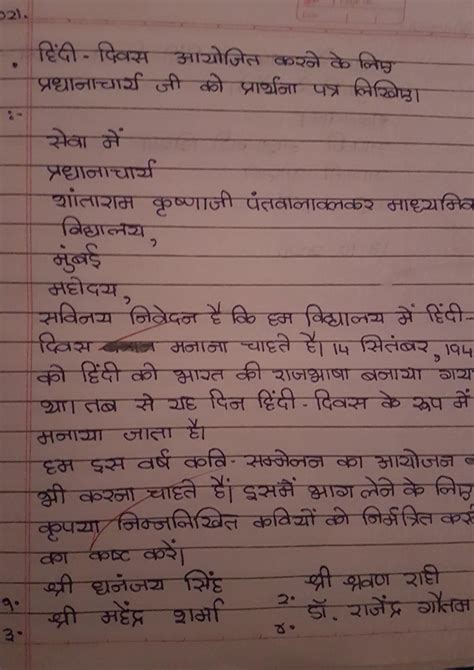 021.
हिंदी - दिवस आयोजित करने के लिए
प्रधानाचार्य जी को प्रार्थना पत्र लिखिए।
:-
सेवा में
प्रधानाचार्य
शांताराम कृष्णाजी पंतवालावलकर माध्यमिक
विद्यालय,
मुंबई
महोदय,
सविनय निवेदन है कि हम विद्यालय में हिंदी-
दिवस मनाना चाहते है। 14 सितंबर, 194
को हिंदी को भारत की राजभाषा बनाया गय
था। तब से यह दिन हिंदी - दिवस के रूप में
मनाया जाता है।
हम इस वर्ष कवि - सम्मेलन का आयोजन
भी करना चाहते हैं। इसमें भाग लेने के लिए
कृपया निम्नलिखित कवियों को निमंत्रित कर
का कष्ट करें।
१. श्री धनंजय सिंह २. श्री श्रवण राही
३. श्री महेंद्र शर्मा ४. डॉ. राजेंद्र गौतम